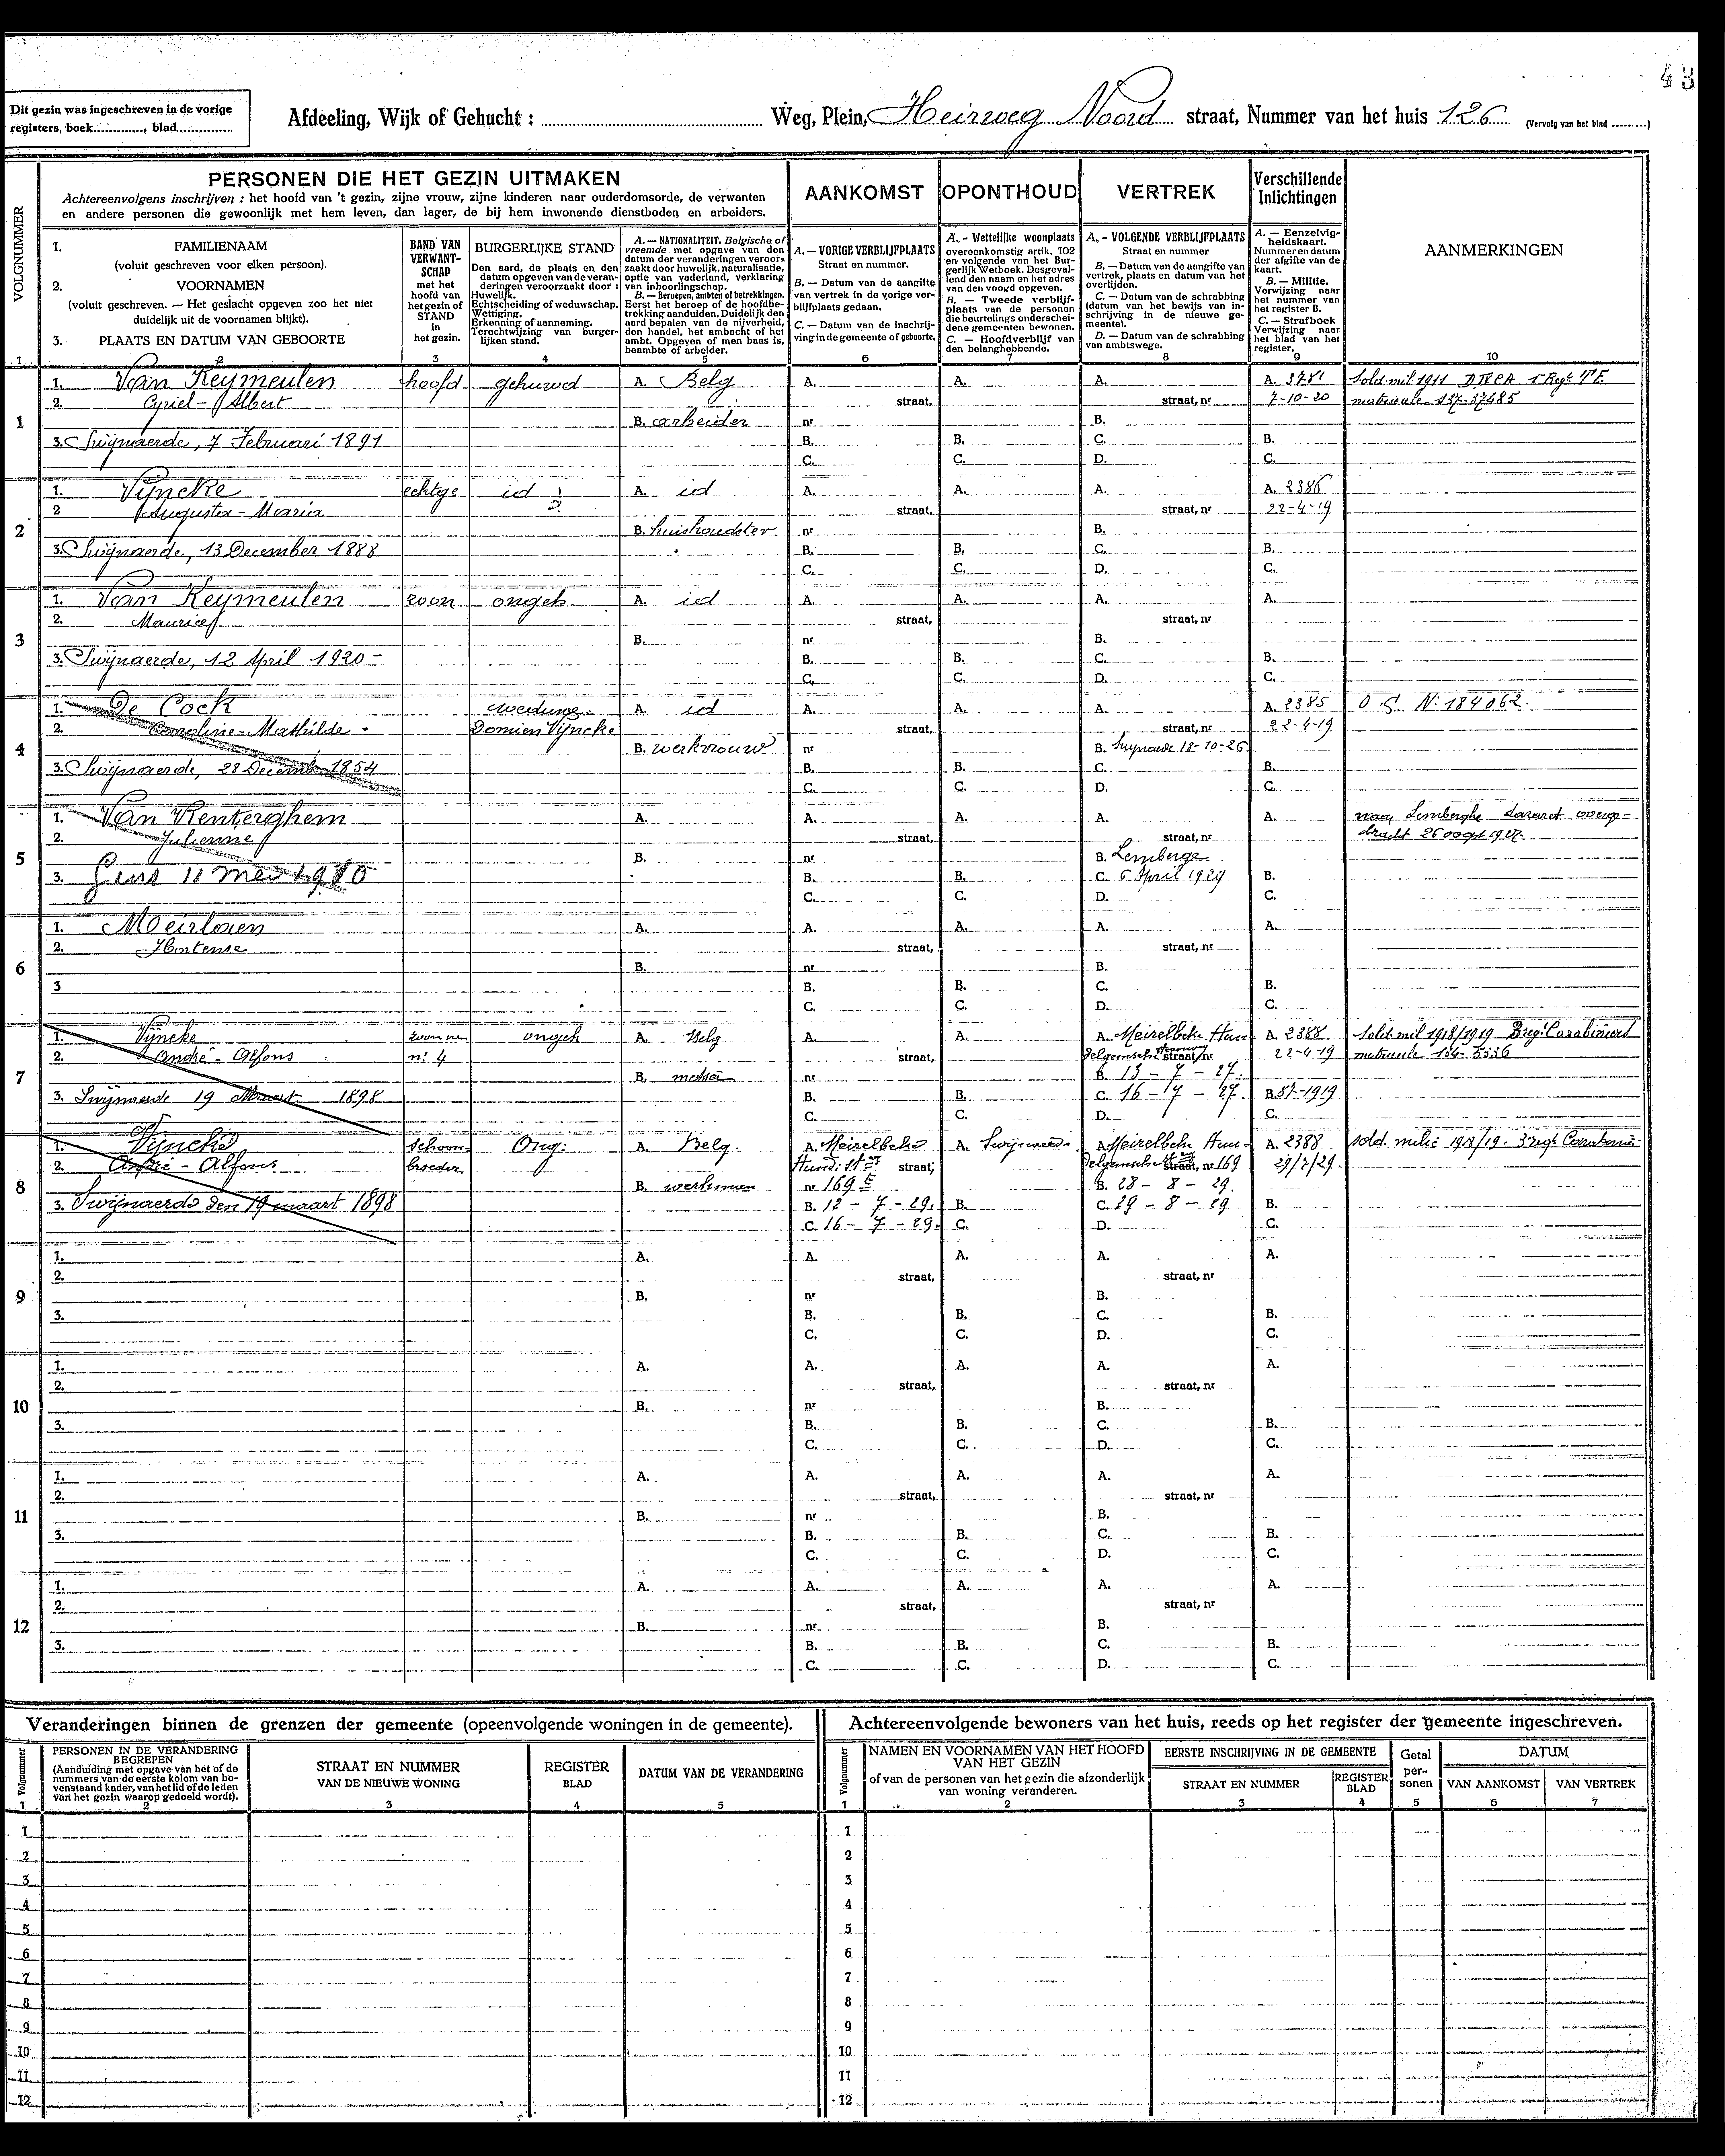 43
Dit gezin was ingeschreven in de vorige
registers, boek............, blad..............
Afdeeling, Wijk of Gehucht : ........................ Weg, Plein, Heirweg Noord straat, Nummer van het huis 126 (Vervolg van het blad .........)
PERSONEN DIE HET GEZIN UITMAKEN
Achtereenvolgens inschrijven : het hoofd van 't gezin, zijne vrouw, zijne kinderen naar ouderdomsorde, de verwanten
en andere personen die gewoonlijk met hem leven, dan lager, de bij hem inwonende dienstboden en arbeiders.
AANKOMST
OPONTHOUD
VERTREK
Verschillende
Inlichtingen
AANMERKINGEN
VOLGNUMMER
1. FAMILIENAAM
(voluit geschreven voor elken persoon).
2. VOORNAMEN
(voluit geschreven. — Het geslacht opgeven zoo het niet
duidelijk uit de voornamen blijkt).
3. PLAATS EN DATUM VAN GEBOORTE
BAND VAN
VERWANT-
SCHAP
met het
hoofd van
het gezin of
STAND
in
het gezin.
BURGERLIJKE STAND
Den aard, de plaats en den
datum opgeven van de veran-
deringen veroorzaakt door :
Huwelijk.
Echtscheiding of weduwschap.
Wettiging.
Erkenning of aanneming.
Terechtwijzing van burger-
lijken stand.
A. — NATIONALITEIT. Belgische of
vreemde met opgave van den
datum der veranderingen veroor-
zaakt door huwelijk, naturalisatie,
optie van vaderland, verklaring
van inboorlingschap.
B. — Beroepen, ambten of betrekkingen.
Eerst het beroep of de hoofdbe-
trekking aanduiden. Duidelijk den
aard bepalen van de nijverheid,
den handel, het ambacht of het
ambt. Opgeven of men baas is,
beambte of arbeider.
A. — VORIGE VERBLIJFPLAATS
Straat en nummer.
B. — Datum van de aangifte
van vertrek in de vorige ver-
blijfplaats gedaan.
C. — Datum van de inschrij-
ving in de gemeente of geboorte.
A. - Wettelijke woonplaats
overeenkomstig artik. 102
en volgende van het Bur-
gerlijk Wetboek. Desgeval-
lend den naam en het adres
van den voogd opgeven.
B. — Tweede verblijf-
plaats van de personen
die beurtelings onderschei-
dene gemeenten bewonen.
C. — Hoofdverblijf van
den belanghebbende.
A. - VOLGENDE VERBLIJFPLAATS
Straat en nummer
B. — Datum van de aangifte van
vertrek, plaats en datum van het
overlijden.
C. — Datum van de schrabbing
(datum van het bewijs van in-
schrijving in de nieuwe ge-
meente).
D. — Datum van de schrabbing
van ambtswege.
A. — Eenzelvig-
heidskaart.
Nummer en datum
der afgifte van de
kaart.
B. — Militie.
Verwijzing naar
het nummer van
het register B.
C. — Strafboek
Verwijzing naar
het blad van het
register.
1 2 3 4 5 6 7 8 9 10
1
1. Van Keymeulen hoofd gehuwd A. Belg A. A. A. A. 3781 Sold. mil 1911
2. Cyriel - Albert straat, straat, nr 7-10-20 matricule 157-37485
B. arbeider nr B.
3. Swijnaerde, 7 Februari 1891 B. B. C. B.
C. C. D. C.
2
1. Vyncke echtge id A. id A. A. A. A. 2386
2 Augusta - Maria straat, straat, nr 22-4-19
B. huishoudster nr B.
3. Swijnaerde, 13 December 1888 B. B. C. B.
C. C. D. C.
3
1. Van Keymeulen zoon ongeh. A. id A. A. A. A.
2. Maurice straat, straat, nr
B. nr B.
3. Swijnaerde, 12 April 1920 - B. B. C. B.
C. C. D. C.
4
1. De Cock weduwe A. id A. A. A. A. 2385 O. S. N: 184062.
2. Caroline - Mathilde - Domien Vyncke straat, straat, nr 22-4-19
B. werkvrouw nr B. Swynaerde 18-10-26
3. Swijnaerde, 28 Decemb. 1854 B. B. C. B.
C. C. D. C.
5
1. Van Renterghem A. A. A. A. A. naar Lemberghe
2. Julienne straat, straat, nr 26 oogst 1927.
B. nr B. Lemberge
3. Gent 11 mei 1910 B. B. C. 6 April 1929 B.
C. C. D. C.
6
1. Meirlaen A. A. A. A. A.
2. Hortense straat, straat, nr
B. nr B.
3 B. B. C. B.
C. C. D. C.
7
1. Vyncke zoon van ongeh A. Belg A. A. A. Meirelbeke Hun- A. 2388 Sold. mil 1918/1919 3 reg. Carabiniers
2. André - Alfons n: 4 straat, delgemsche Steenweg straat, nr 22-4-19 matricule 154-5556
B. nr B. 13 - 7 - 27.
3. Swijnaerde 19 Maart 1898 B. B. C. 16 - 7 - 27. B. 57-1919
C. C. D. C.
8
1. Vyncke schoon- Ong: A. Belg. A. Meirelbeke A. Swijnaerde A. Meirelbeke Hun- A. 2388 sold. milic 1918/19. 3 reg. Carabinie
2. André - Alfons broeder straat, delgemsche straat, nr 169 29/7/29.
B. werkman nr 169 B. 28 - 8 - 29.
3. Swijnaerde den 19 maart 1898 B. 12 - 7 - 29. B. C. 29 - 8 - 29 B.
C. 16 - 7 - 29. C. D. C.
9
1. A. A. A. A. A.
2. straat, straat, nr
B. nr B.
3. B. B. C. B.
C. C. D. C.
10
1. A. A. A. A. A.
2. straat, straat, nr
B. nr B.
3. B. B. C. B.
C. C. D. C.
11
1. A. A. A. A. A.
2. straat, straat, nr
B. nr B.
3. B. B. C. B.
C. C. D. C.
12
1. A. A. A. A. A.
2. straat, straat, nr
B. nr B.
3. B. B. C. B.
C. C. D. C.
Veranderingen binnen de grenzen der gemeente (opeenvolgende woningen in de gemeente).
Volgnummer
PERSONEN IN DE VERANDERING
BEGREPEN
(Aanduiding met opgave van het of de
nummers van de eerste kolom van bo-
venstaand kader, van het lid of de leden
van het gezin waarop gedoeld wordt).
STRAAT EN NUMMER
VAN DE NIEUWE WONING
REGISTER
BLAD
DATUM VAN DE VERANDERING
1 2 3 4 5
1
2
3
4
5
6
7
8
9
10
11
12
Achtereenvolgende bewoners van het huis, reeds op het register der gemeente ingeschreven.
Volgnummer
NAMEN EN VOORNAMEN VAN HET HOOFD
VAN HET GEZIN
of van de personen van het gezin die afzonderlijk
van woning veranderen.
EERSTE INSCHRIJVING IN DE GEMEENTE
STRAAT EN NUMMER
REGISTER
BLAD
Getal
per-
sonen
DATUM
VAN AANKOMST
VAN VERTREK
1 2 3 4 5 6 7
1
2
3
4
5
6
7
8
9
10
11
12